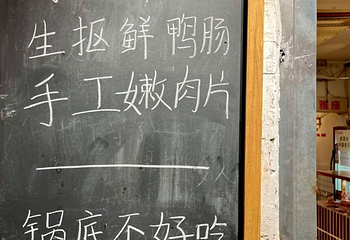 生抠鲜鸭肠
手工嫩肉片
锅底不好吃
雅座